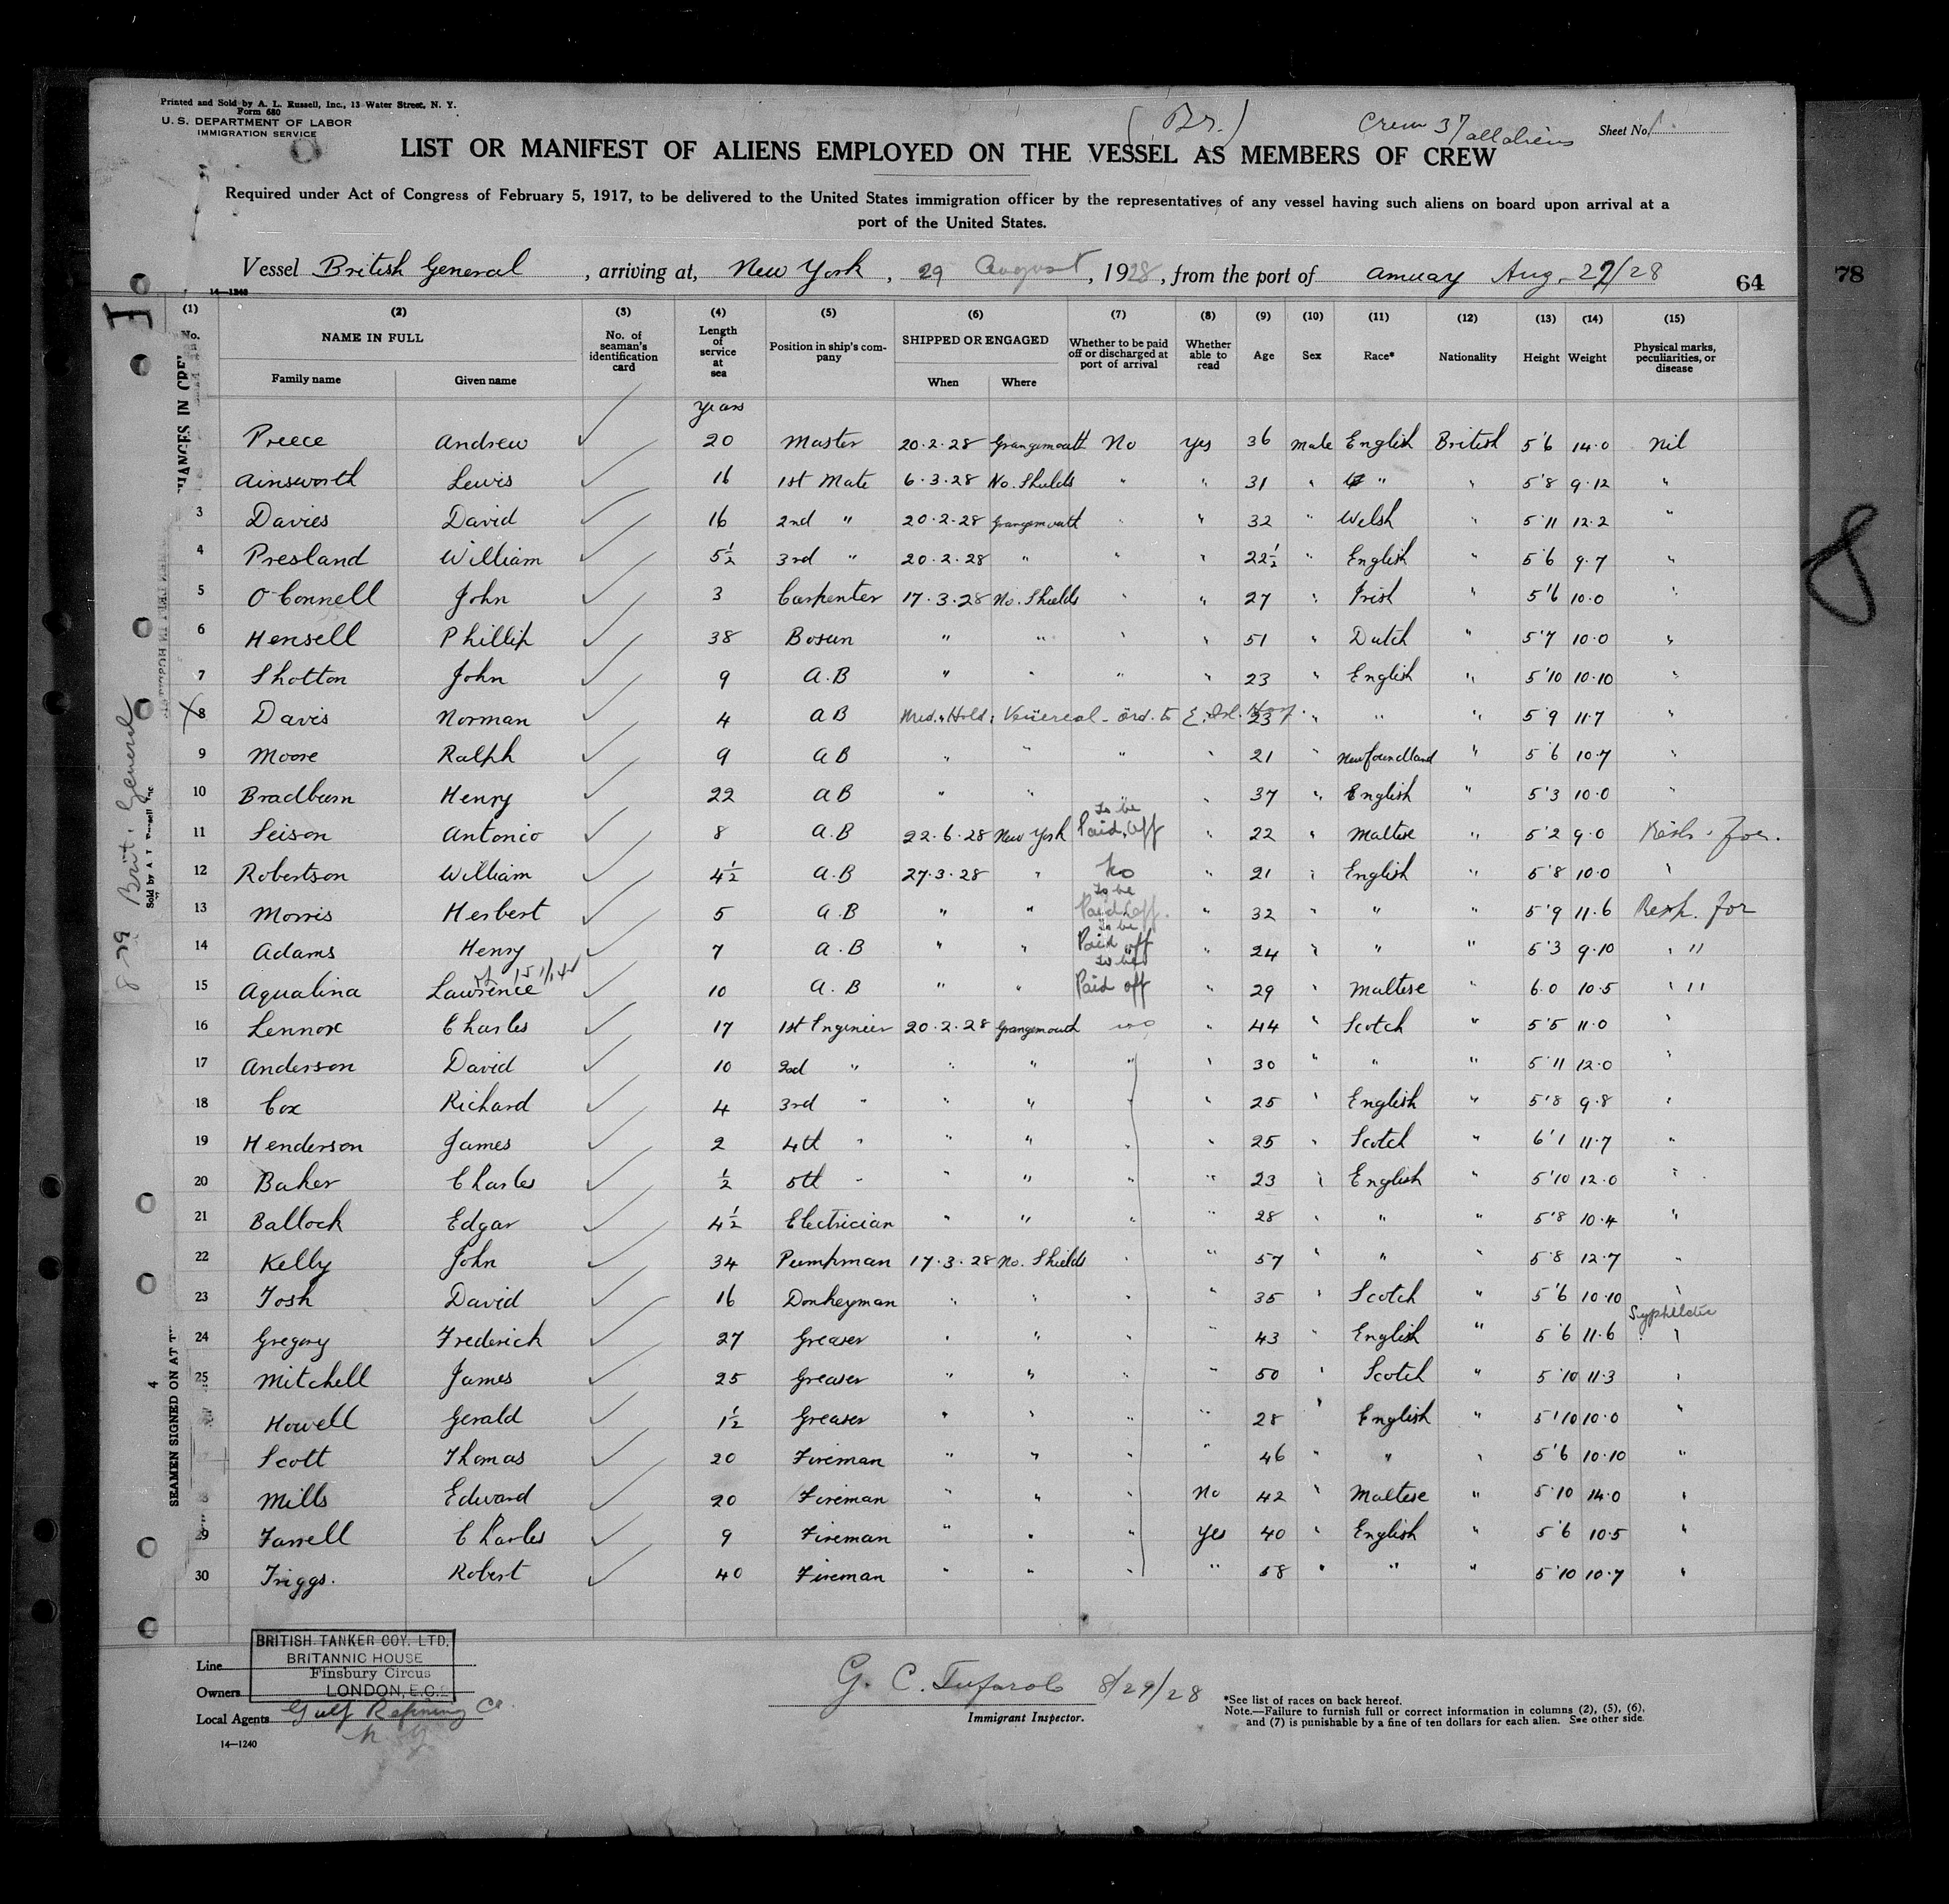 Printed and Sold by A. L. Russell, Inc., 13 Water Street, N. Y.
Form 680
U. S. DEPARTMENT OF LABOR
IMMIGRATION SERVICE
(Br.)
Crew 37 all aliens
Sheet No. 1
LIST OR MANIFEST OF ALIENS EMPLOYED ON THE VESSEL AS MEMBERS OF CREW
Required under Act of Congress of February 5, 1917, to be delivered to the United States immigration officer by the representatives of any vessel having such aliens on board upon arrival at a
port of the United States.
Vessel British General, arriving at, New York, 29 August, 1928, from the port of amuay Aug. 27/28
64
78
14—1240
(1) (2) (3) (4) (5) (6) (7) (8) (9) (10) (11) (12) (13) (14) (15)
No. NAME IN FULL No. of seaman's identification card Length of service at sea Position in ship's company SHIPPED OR ENGAGED Whether to be paid off or discharged at port of arrival Whether able to read Age Sex Race* Nationality Height Weight Physical marks, peculiarities, or disease
Family name Given name When Where
years
Preece Andrew 20 Master 20.2.28 Grangemouth No yes 36 Male English British 5'6 14.0 nil
Ainsworth Lewis 16 1st Mate 6.3.28 No. Shields " " 31 " " " 5'8 9.12 "
3 Davies David 16 2nd " 20.2.28 Grangemouth " " 32 " Welsh " 5'11 12.2 "
4 Presland William 5½ 3rd " 20.2.28 " " " 22½ " English " 5'6 9.7 "
5 O'Connell John 3 Carpenter 17.3.28 No. Shields " " 27 " Irish " 5'6 10.0 "
6 Hensell Phillip 38 Bosun " " " " 51 " Dutch " 5'7 10.0 "
7 Shotton John 9 A.B " " " " 23 " English " 5'10 10.10 "
8 Davis Norman 4 AB Med. Hold. Venereal - ord. to E. Isl. Hosp. 23 " " " 5'9 11.7 "
9 Moore Ralph 9 AB " " " " 21 " Newfoundland " 5'6 10.7 "
10 Bradburn Henry 22 AB " " " " 37 " English " 5'3 10.0 "
11 Seison Antonio 8 A.B 22.6.28 New York To be Paid Off " 22 " Maltese " 5'2 9.0
12 Robertson William 4½ A.B 27.3.28 " No " 21 " English " 5'8 10.0 "
13 Morris Herbert 5 A.B " " To be Paid off. " 32 " " " 5'9 11.6
14 Adams Henry 7 A.B " " To be Paid off " 24 " " " 5'3 9.10 "
15 Aqualina Lawrence 10 A.B " " To be Paid off " 29 " Maltese " 6.0 10.5 "
16 Lennox Charles 17 1st Engineer 20.2.28 Grangemouth no " 44 " Scotch " 5'5 11.0 "
17 Anderson David 10 2nd " " " " " 30 " " " 5'11 12.0 "
18 Cox Richard 4 3rd " " " " " 25 " English " 5'8 9.8 "
19 Henderson James 2 4th " " " " " 25 " Scotch " 6'1 11.7 "
20 Baker Charles ½ 5th " " " " " 23 " English " 5'10 12.0 "
21 Ballock Edgar 4½ Electrician " " " " 28 " " " 5'8 10.4 "
22 Kelly John 34 Pumpman 17.3.28 No. Shields " " 57 " " " 5'8 12.7 "
23 Tosh David 16 Donkeyman " " " " 35 " Scotch " 5'6 10.10 "
24 Gregory Frederick 27 Greaser " " " " 43 " English " 5'6 11.6 "
25 Mitchell James 25 Greaser " " " " 50 " Scotch " 5'10 11.3 "
Howell Gerald 1½ Greaser " " " " 28 " English " 5'10 10.0 "
Scott Thomas 20 Fireman " " " " 46 " " " 5'6 10.10 "
Mills Edward 20 Fireman " " " No 42 " Maltese " 5'10 14.0 "
29 Farrell Charles 9 Fireman " " " Yes 40 " English " 5'6 10.5 "
30 Triggs. Robert 40 Fireman " " " 58 " " " 5'10 10.7 "
8-29 Brit. General
SEAMEN SIGNED ON AT
Line
Owners
BRITISH TANKER COY. LTD.
BRITANNIC HOUSE
Finsbury Circus
LONDON, E.C.2
Local Agents Gulf Refining Co
N.Y.
14—1240
8/29/28
Immigrant Inspector.
*See list of races on back hereof.
Note.—Failure to furnish full or correct information in columns (2), (5), (6),
and (7) is punishable by a fine of ten dollars for each alien. See other side.